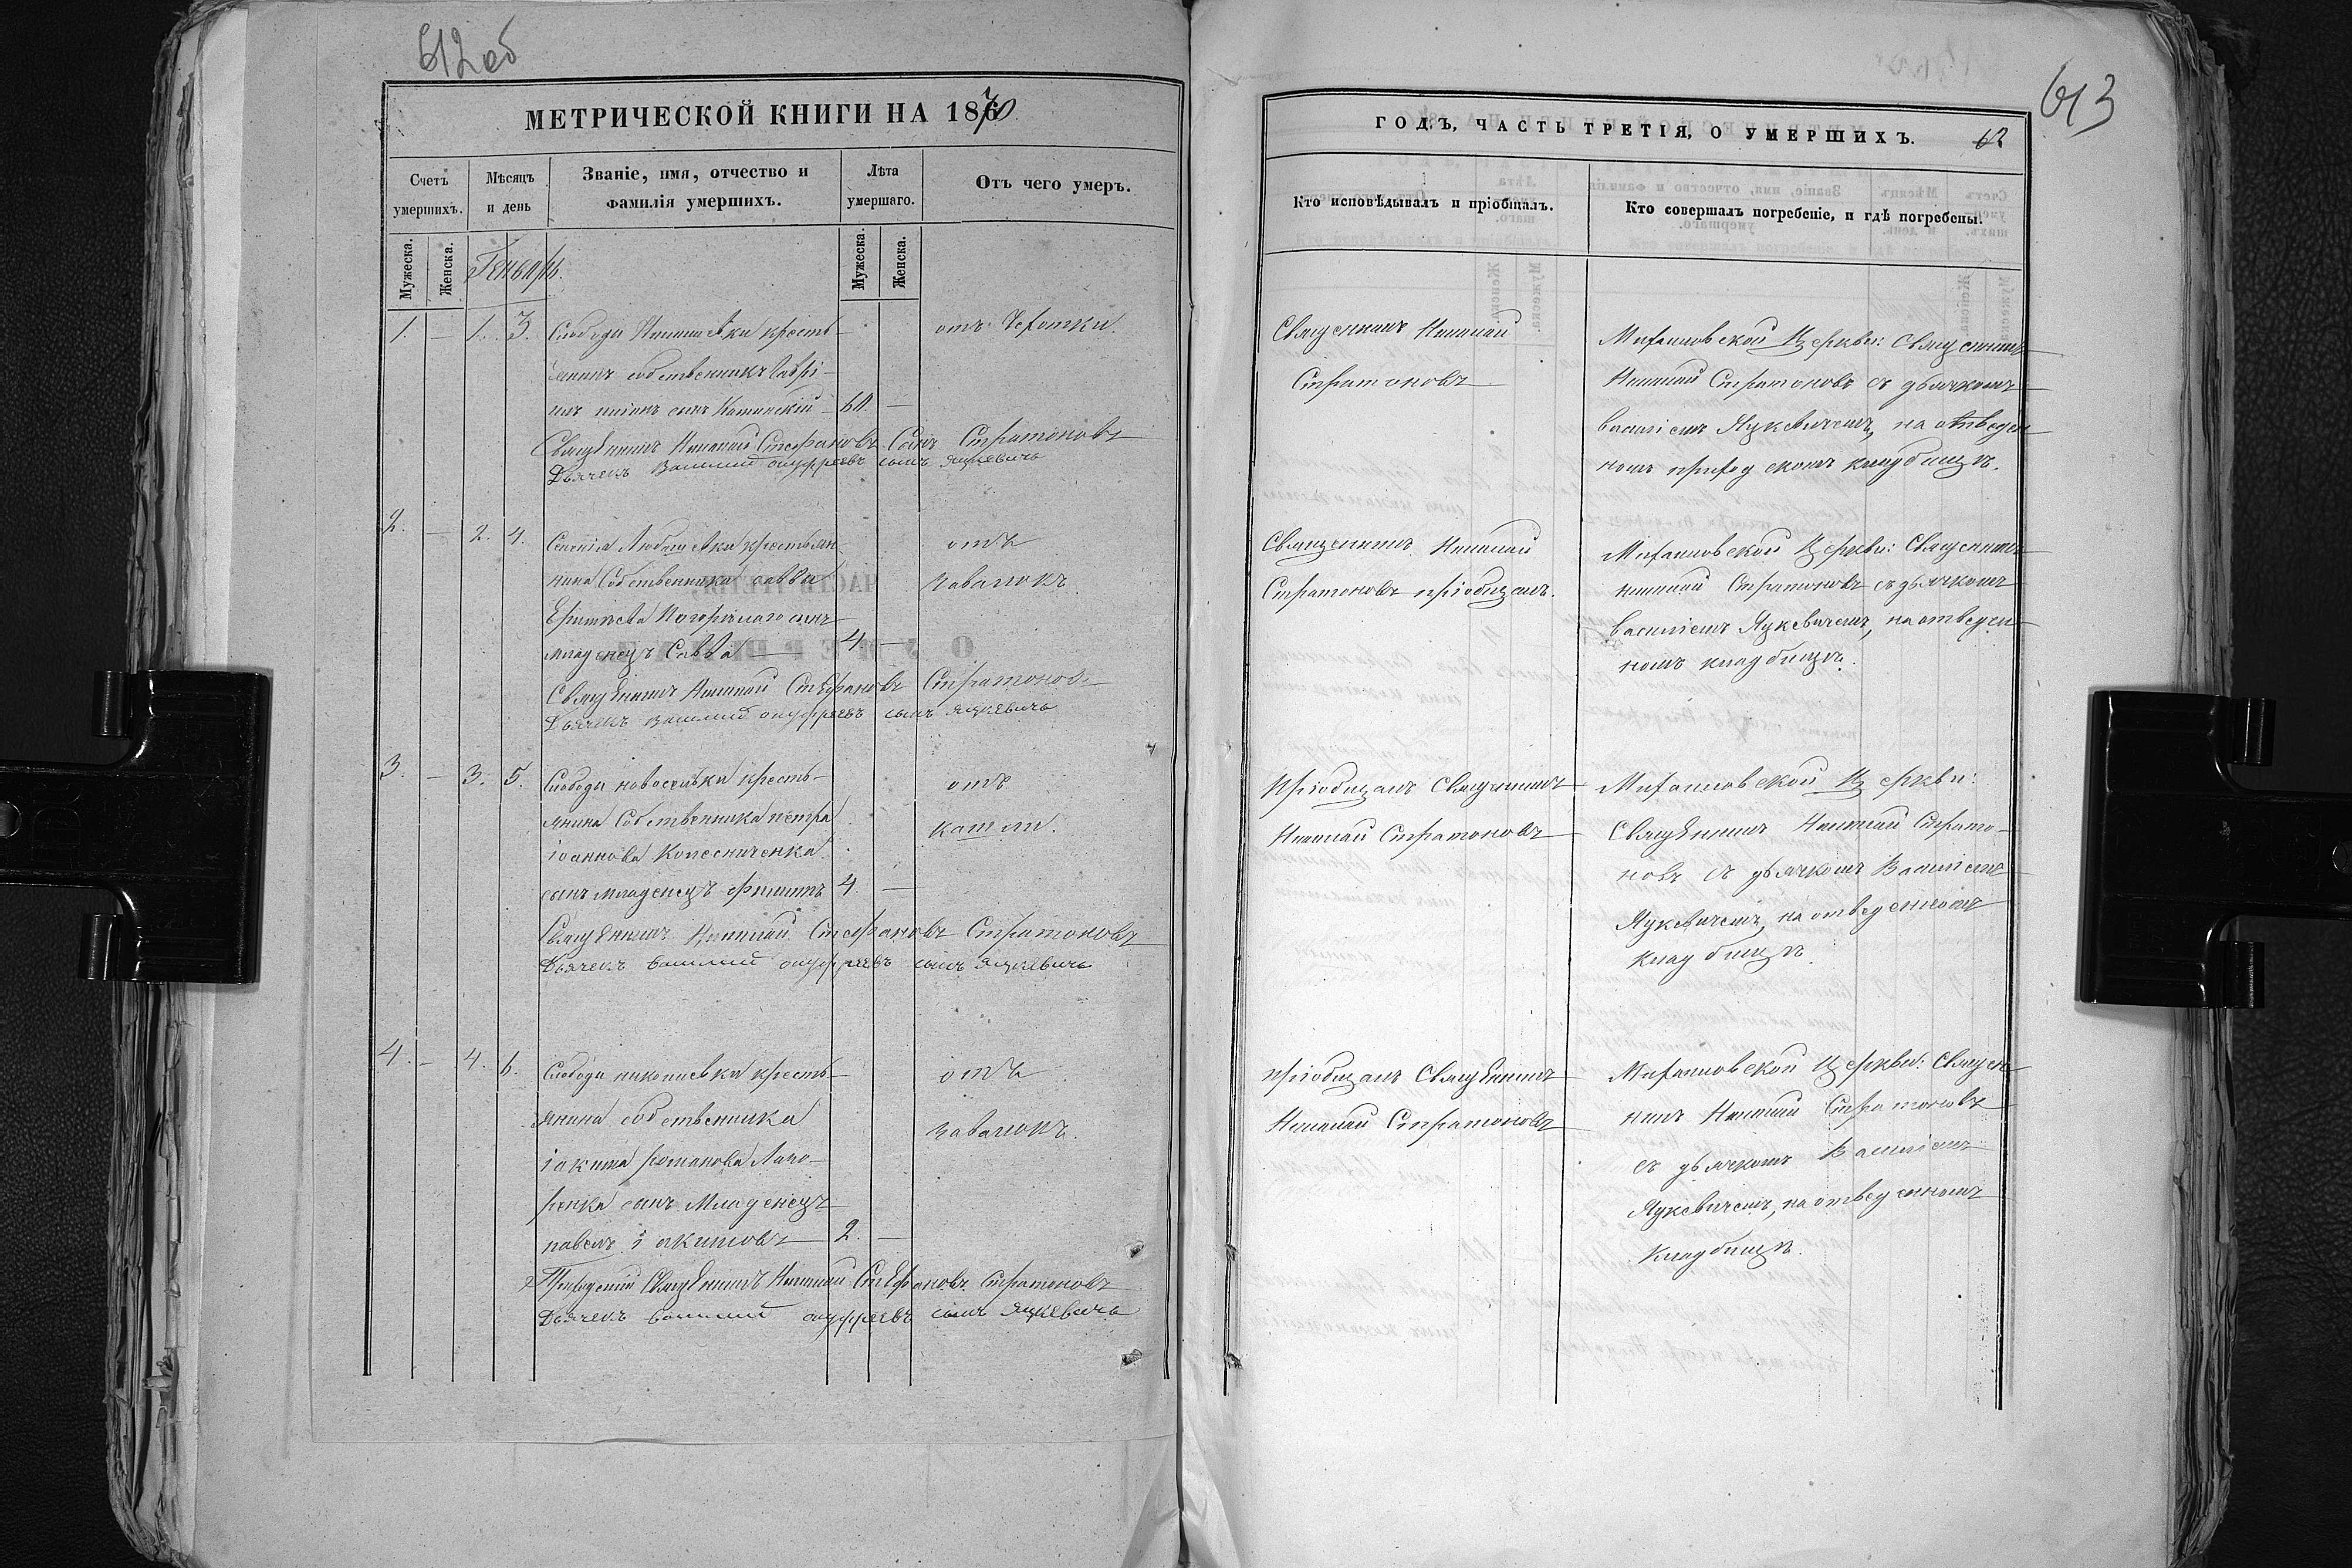 612 об
МЕТРИЧЕСКОЙ КНИГИ НА 1870
Счетъ умершихъ.
Мѣсяцъ и день
Званіе, имя, отчество и фамилія умершихъ.
Лѣта умершаго.
Отъ чего умеръ.
Мужеска.
Женска.
Генварь.
Мужеска.
Женска.
1. — 1. 3. Слободы Николаевки кресть-
отъ чехотки.
янинъ собственникъ
сынъ 60. —
Священникъ Николай Стефановъ Сынъ Стратоновъ
Дьячекъ Василий онуфреевъ сынъ Яцкевичь
2. — 2. 4. Селенія Любошевки крестьян
отъ
нина Собственника саввы
колики
младенецъ Савва 4 —
Священникъ Николай Стефановъ Стратоновъ
Дьячекъ василий онуфреевъ сынъ яцкевичь
3. — 3. 5. Слободы новоселовки кресть-
отъ
янина Собственника петра
кашли.
іоаннова Колесниченка
сынъ младенецъ филиппъ 4. —
Священникъ Николай Стефановъ Стратоновъ
Дьячекъ василий онуфреевъ сынъ яцкевичь
4. — 4. 6. Слободы николаевки кресть-
отъ
янина собственника
іакима романова
сынъ Младенецъ
павелъ іакимовъ 2. —
Приходский Священникъ Николай Стефановъ Стратоновъ
Дьячекъ василий онуфреевъ сынъ яцкевичь
613
ГОДЪ, ЧАСТЬ ТРЕТІЯ, О УМЕРШИХЪ.
62
Кто исповѣдывалъ и пріобщалъ.
Кто совершалъ погребеніе, и гдѣ погребены.
Священникъ Николай
Стратоновъ
Михаиловской Церкви: Священникъ
Николай Стратоновъ съ дьячкомъ
василіемъ Яцкевичемъ, на отведен
номъ приходскомъ кладбищѣ.
Священникъ Николай
Стратоновъ пріобщалъ.
Михаиловской Церкви: Священникъ
николай Стратоновъ съ дьячкомъ
василіемъ Яцкевичемъ, на отведен
номъ кладбищѣ.
Пріобщалъ Священникъ
Николай Стратоновъ
Михаиловской Церкви:
Священникъ Николай Страто-
новъ съ дьячкомъ Василіемъ
Яцкевичемъ, на отведенномъ
кладбищѣ.
пріобщалъ Священникъ
Николай Стратоновъ
Михаиловской Церкви: Священ
никъ Николай Стратоновъ
съ дьячкомъ Василіемъ
Яцкевичемъ, на отведенномъ
Кладбищѣ.